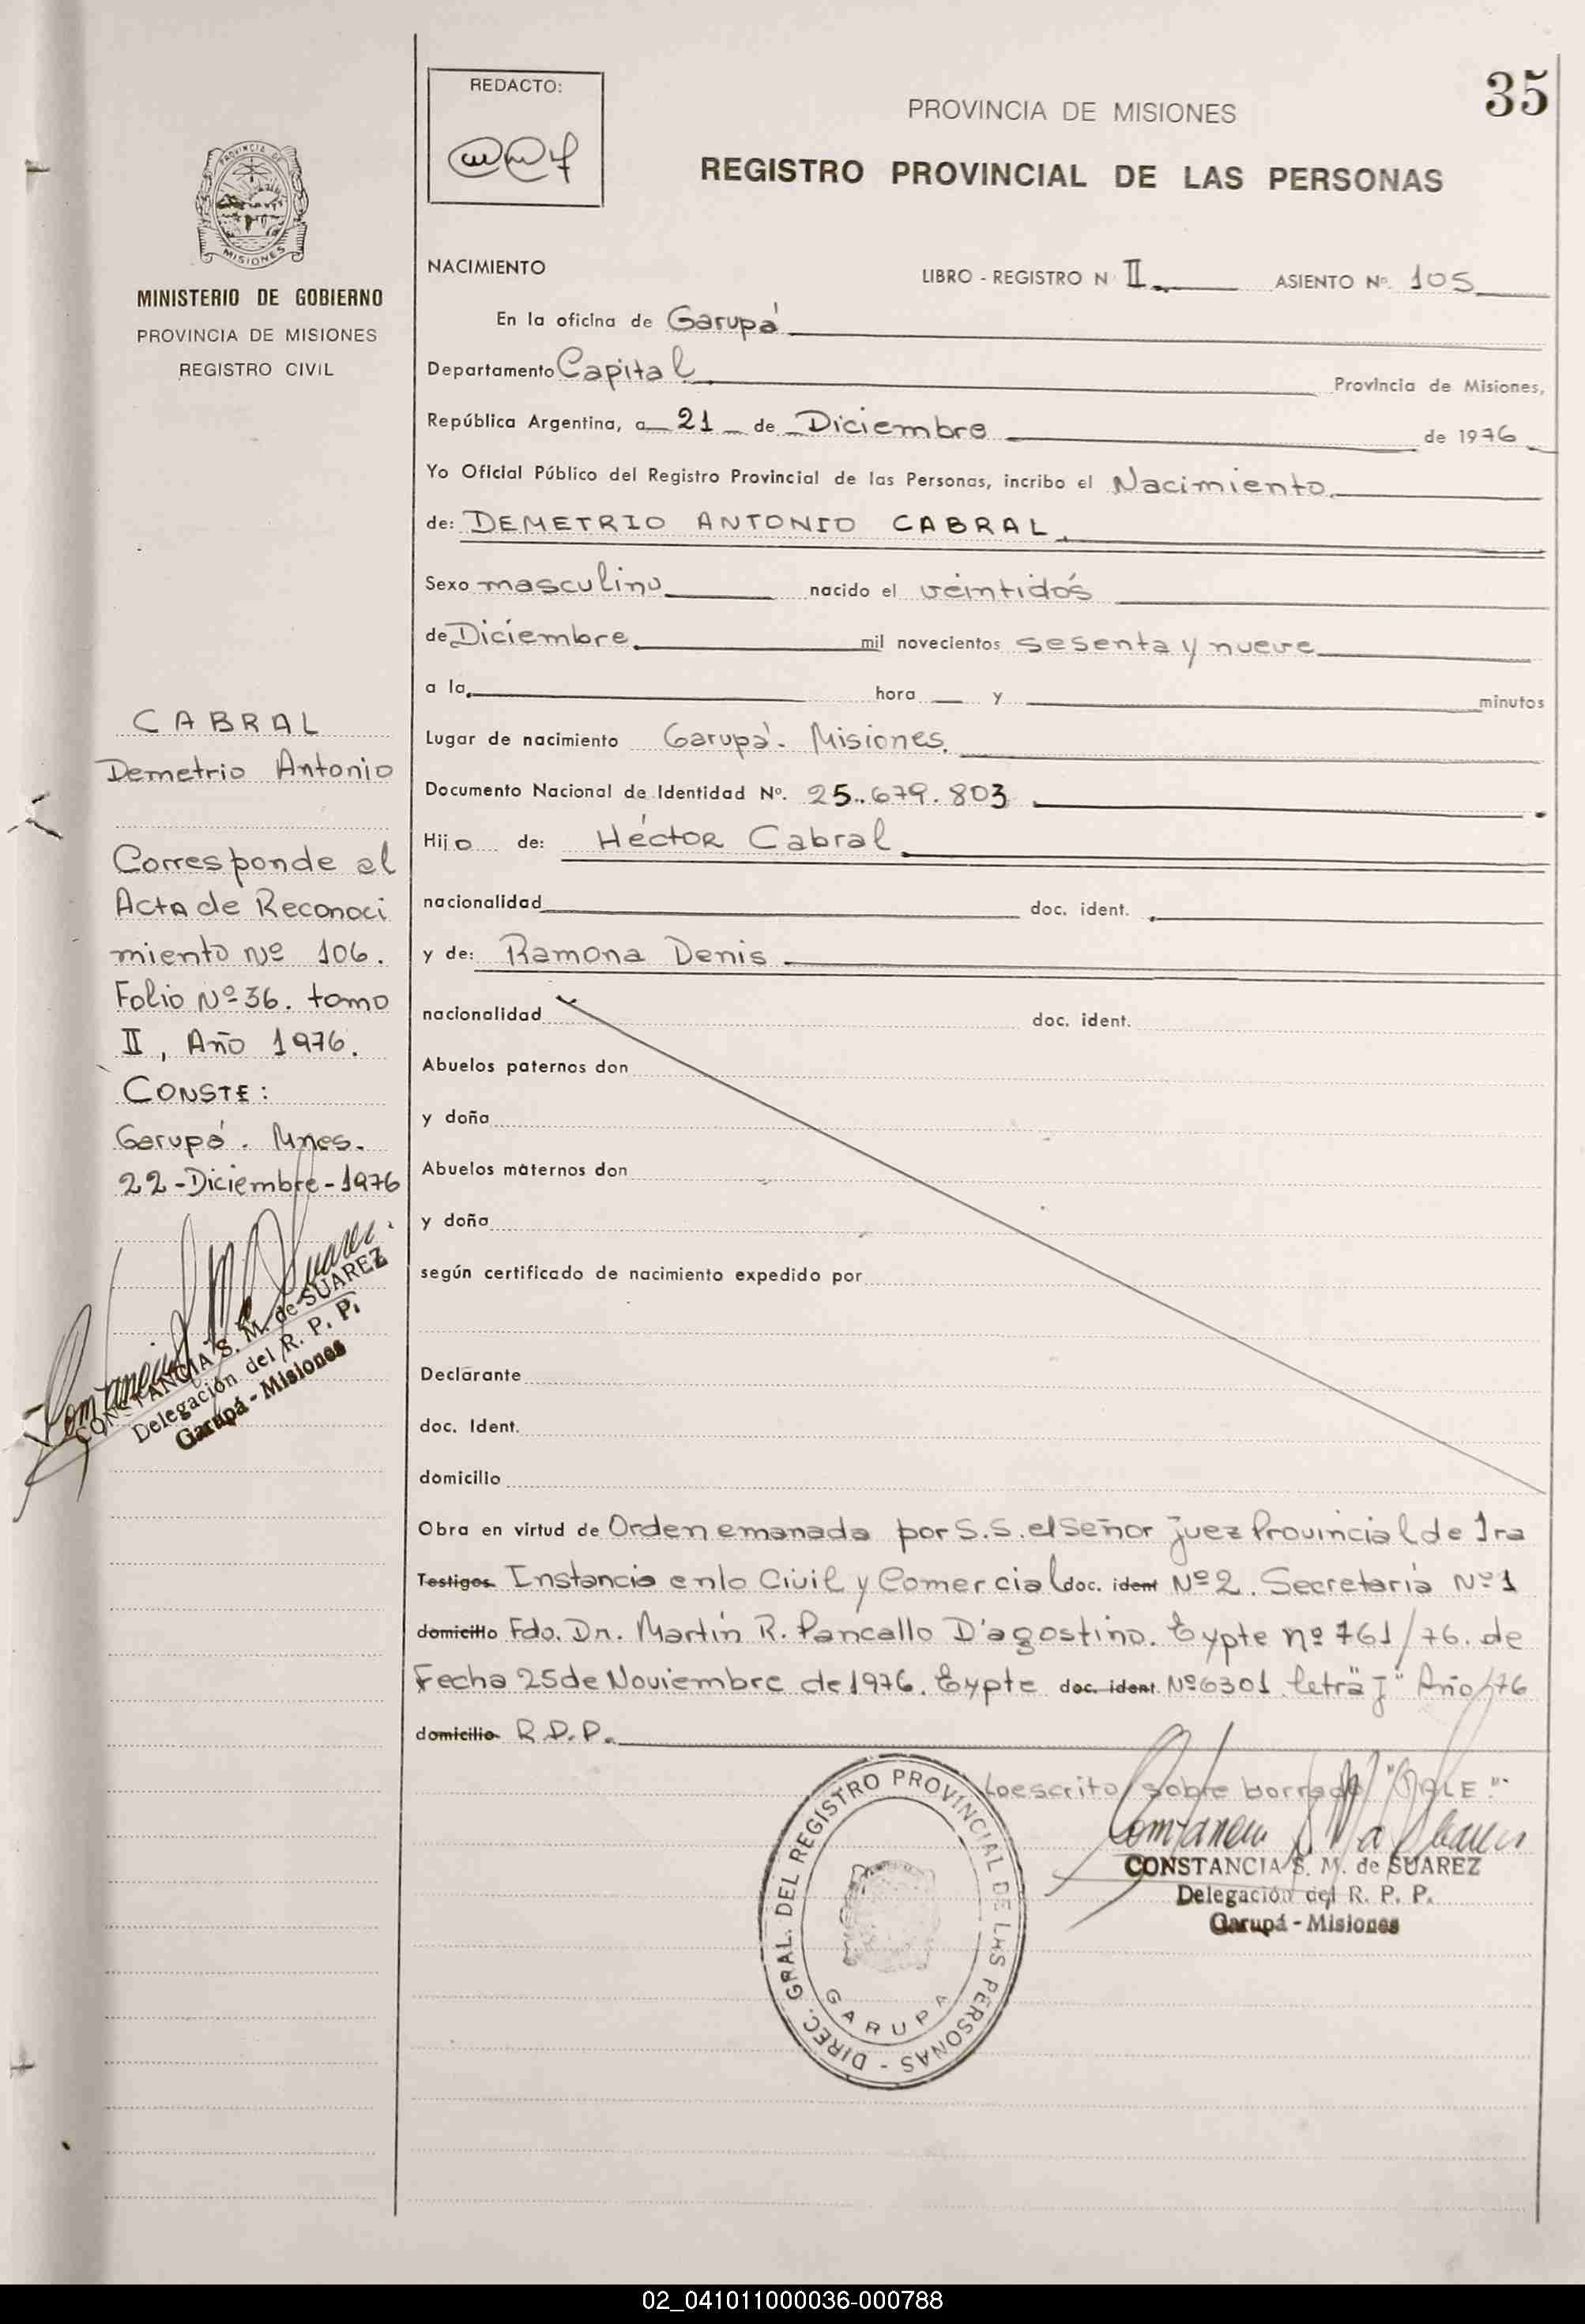 35
REDACTO:
PROVINCIA DE MISIONES
REGISTRO PROVINCIAL DE LAS PERSONAS
PROVINCIA DE
MISIONES
MINISTERIO DE GOBIERNO
PROVINCIA DE MISIONES
REGISTRO CIVIL
NACIMIENTO
LIBRO - REGISTRO N II ASIENTO Nº. 105
En la oficina de Garupá
Departamento Capital Provincia de Misiones,
República Argentina, a 21 de Diciembre de 1976
Yo Oficial Público del Registro Provincial de las Personas, incribo el Nacimiento
de: DEMETRIO ANTONIO CABRAL
Sexo masculino nacido el veintidós
de Diciembre mil novecientos sesenta y nueve
a la hora y minutos
Lugar de nacimiento Garupá. Misiones.
Documento Nacional de Identidad Nº. 25.679.803
Hijo de: Héctor Cabral
nacionalidad doc. ident.
y de: Ramona Denis
nacionalidad doc. ident.
Abuelos paternos don
y doña
Abuelos maternos don
y doña
según certificado de nacimiento expedido por
Declarante
doc. Ident.
domicilio
Obra en virtud de Orden emanada por S.S. el Señor Juez Provincial de 1ra
Testigos Instancia en lo Civil y Comercial doc. ident Nº 2. Secretaría Nº 1
domicilio Fdo. Dr. Martín R. Pancallo D'agostino. Expte nº 761/76. de
Fecha 25 de Noviembre de 1976. Expte doc. ident. Nº 6301 letra "J" Año/76
domicilio R.P.P.
Lo escrito sobre borrado "VALE".
CONSTANCIA S. M. de SUAREZ
Delegación del R. P. P.
Garupá - Misiones
DIREC. GRAL. DEL REGISTRO PROVINCIAL DE LAS PERSONAS -
GARUPA
CABRAL
Demetrio Antonio
Corresponde al
Acta de Reconoci
miento Nº 106.
Folio Nº 36. tomo
II, Año 1976.
CONSTE:
Garupá. Mnes.
22-Diciembre-1976
CONSTANCIA S. M. de SUAREZ
Delegación del R. P. P.
Garupá - Misiones
02_041011000036-000788